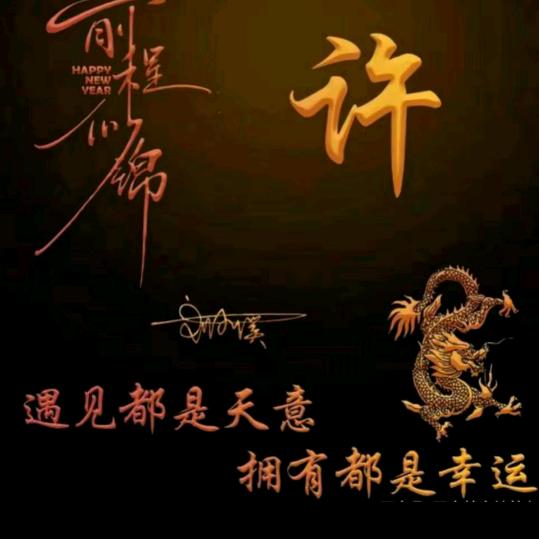 前程似锦
HAPPY
NEW
YEAR
许
遇见都是天意
拥有都是幸运